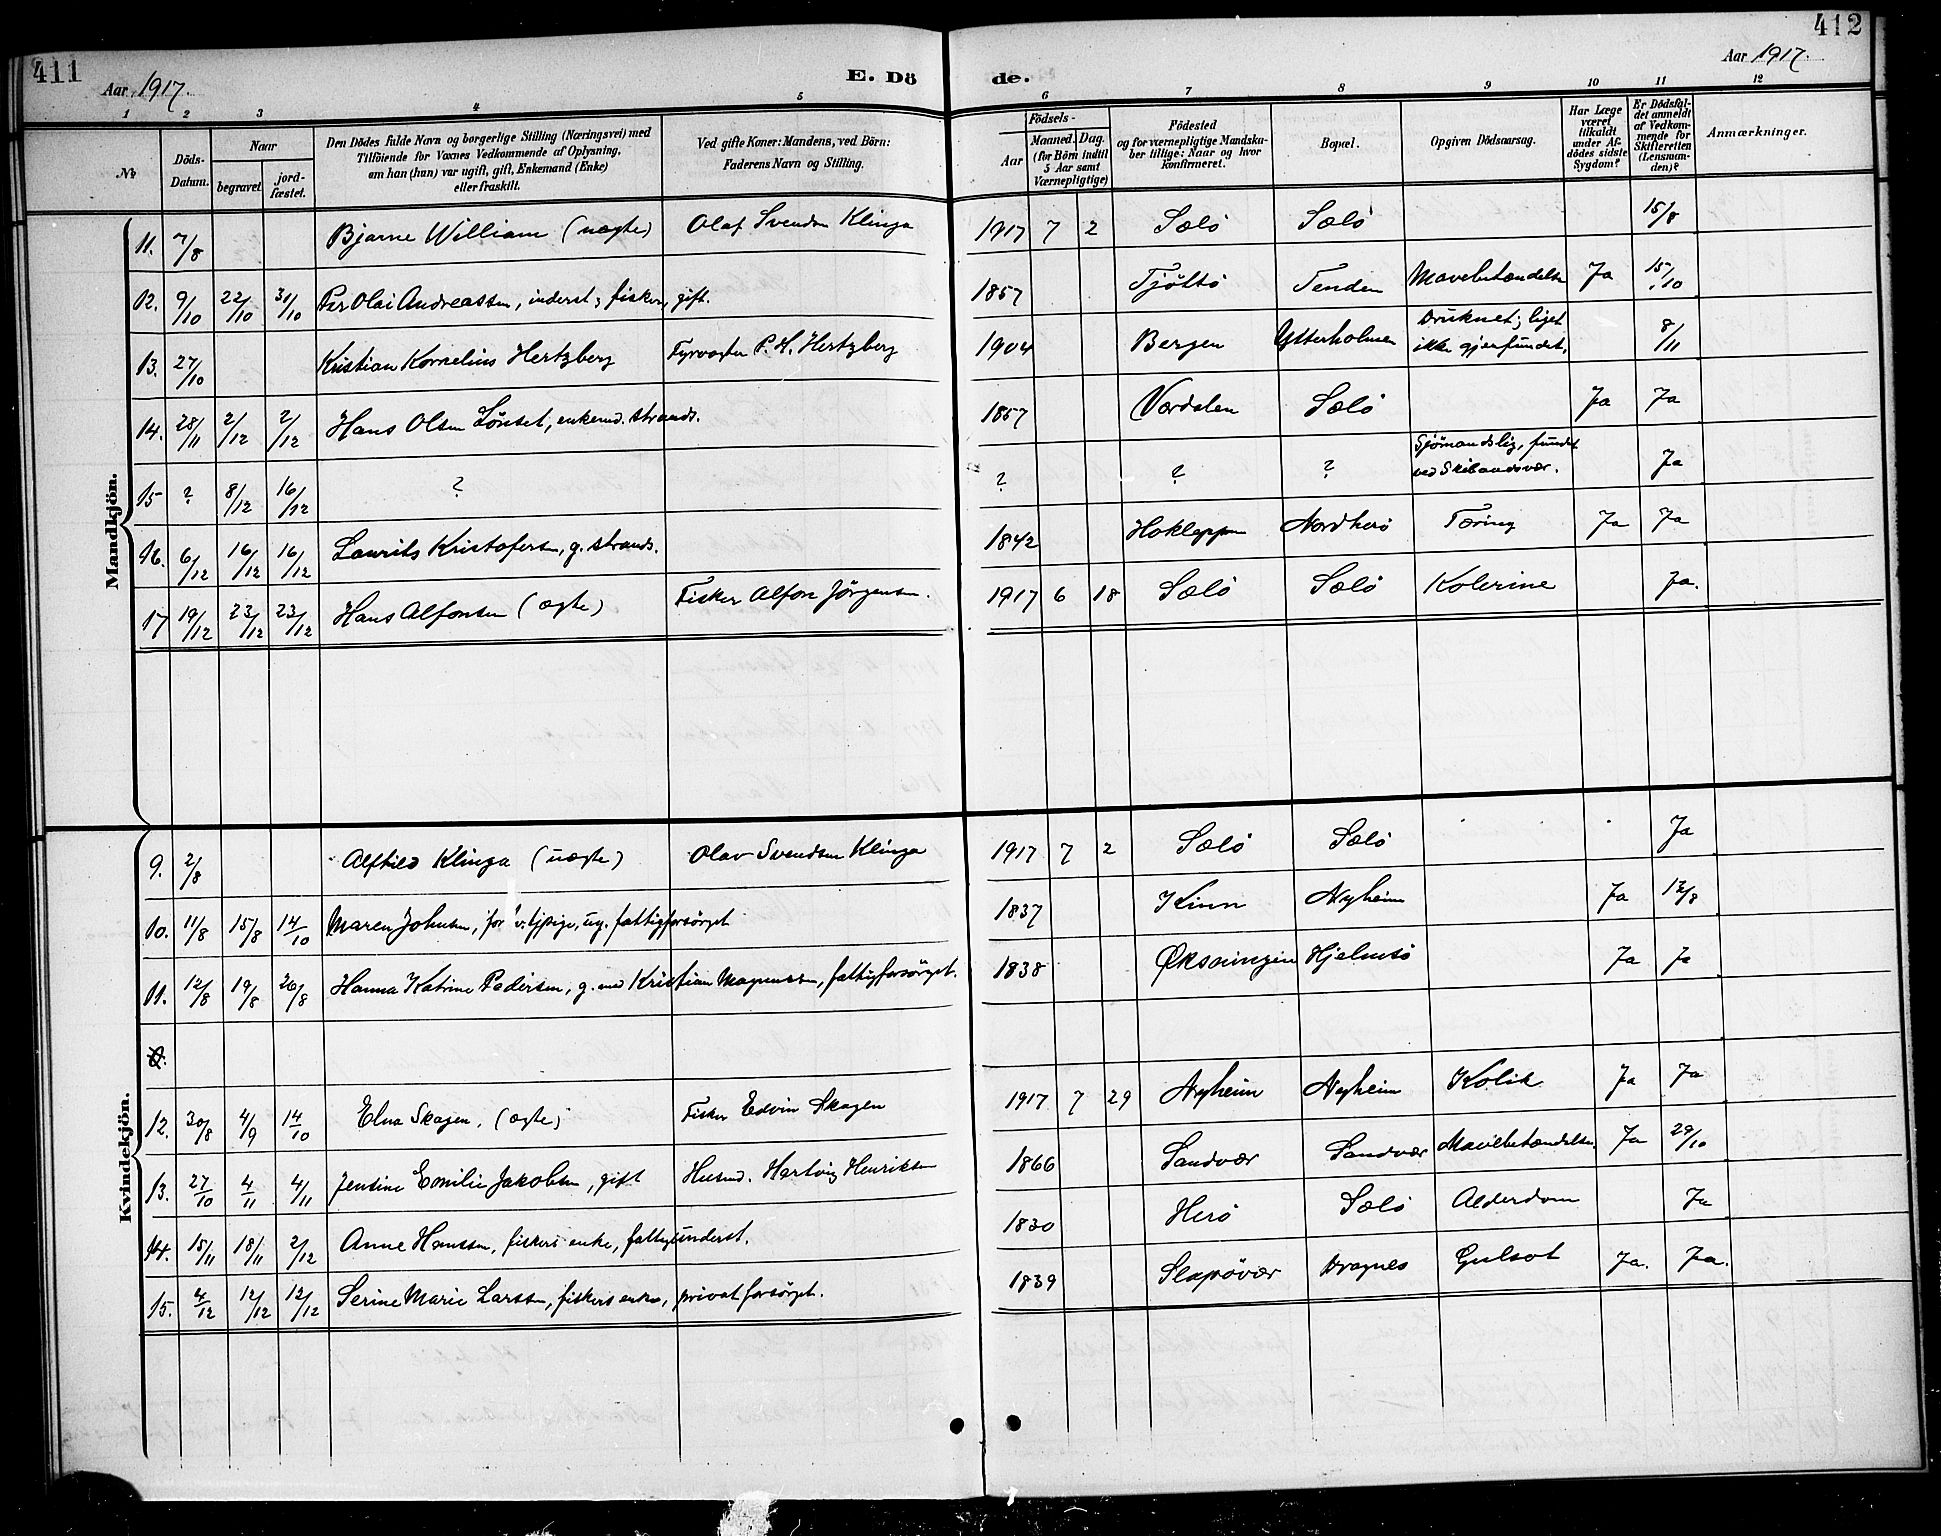 411
412
Aar 1917.
E. Dö
de.
Aar 1917.
1 2 3 4 5 6 7 8 9 10 11 12
No
Döds-Datum.
Naar
begravet.
jord-fæstet.
Den Dödes fulde Navn og borgerlige Stilling (Næringsvei) med
Tilföiende for Voxnes Vedkommende af Oplysning,
om han (hun) var ugift, gift, Enkemand (Enke)
eller fraskilt.
Ved gifte Koner: Mandens, ved Börn:
Faderens Navn og Stilling.
Födsels-
Aar
Maaned. Dag.
(for Börn indtil
5 Aar samt
Værnepligtige)
Födested
og for værnepligtige Mandska-
ber tillige: Naar og hvor
konfirmeret.
Bopæl.
Opgiven Dödsaarsag.
Har Læge
været
tilkaldt
under Af-
dödes sidste
Sygdom?
Er Dödsfal-
det anmeldt
af Vedkom-
mende for
Skifteretten
(Lensman-
den)?
Anmærkninger.
Mandkjön.
11. 7/8 Bjarne William (uægte) Olaf Svendsen Klinga 1917 7 2 Sælö Sælö 15/8
12. 9/10 22/10 31/10 Per Olai Andreassen, inderst, fisker, gift. 1857 Tjöttö Tenden Mavebetændelse Ja 15/10
13. 27/10 Kristian Kornelius Hertzberg Fyrvogter P. H. Hertzberg 1904 Bergen Ytterholmen Druknet; liget
ikke gjenfundet. 8/11
14. 28/11 2/12 2/12 Hans Olsen Lönset, enkemd. strands. 1857 Værdalen Sælö Ja Ja
15 ? 8/12 16/12 ? ? ? ? Sjömandslig, fundet
ved Skibaadsvær. Ja
16. 6/12 16/12 16/12 Laurits Kristofersen, g. strands. 1842 Hokleppen Nordherö Tæring Ja Ja
17 19/12 23/12 23/12 Hans Alfonsen (ægte) Fisker Alfon Jörgensen. 1917 6 18 Sælö Sælö Kolerine Ja.
Kvindekjön.
9. 2/8 Alfhild Klinga (uægte) Olav Svendsen Klinga 1917 7 2 Sælö Sælö Ja
10. 11/8 15/8 14/10 Maren Johnsen, for v. tj.pige, ug. fattigforsörget 1837 Kinn Nyheim Ja 13/8
11. 12/8 19/8 26/8 Hanna Katrine Pedersen, g. med Kristian Magnussen, fattigforsörget. 1838 Öksningen Hjelmsö Ja Ja
12. 30/8 4/9 14/10 Elna Skagen, (ægte) Fisker Edvin Skagen 1917 7 29 Nyheim Nyheim Kolik Ja Ja
13. 27/10 4/11 4/11 Jensine Emilie Jakobsen, gift Husmd. Hartvig Henriksen 1866 Sandvær Sandvær Mavebetændelse Ja 29/10
14. 15/11 18/11 2/12 Anne Hanssen, fiskers enke, fattigunderst. 1830 Herö Sælö Alderdom Ja
15. 4/12 12/12 12/12 Serine Marie Larssen, fiskers enke, privat forsörget. 1839 Slapövær Dragnes Gulsot Ja. Ja.